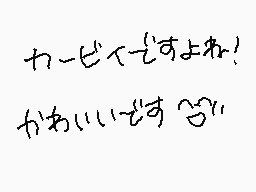 カービィですよね!
かわいいです